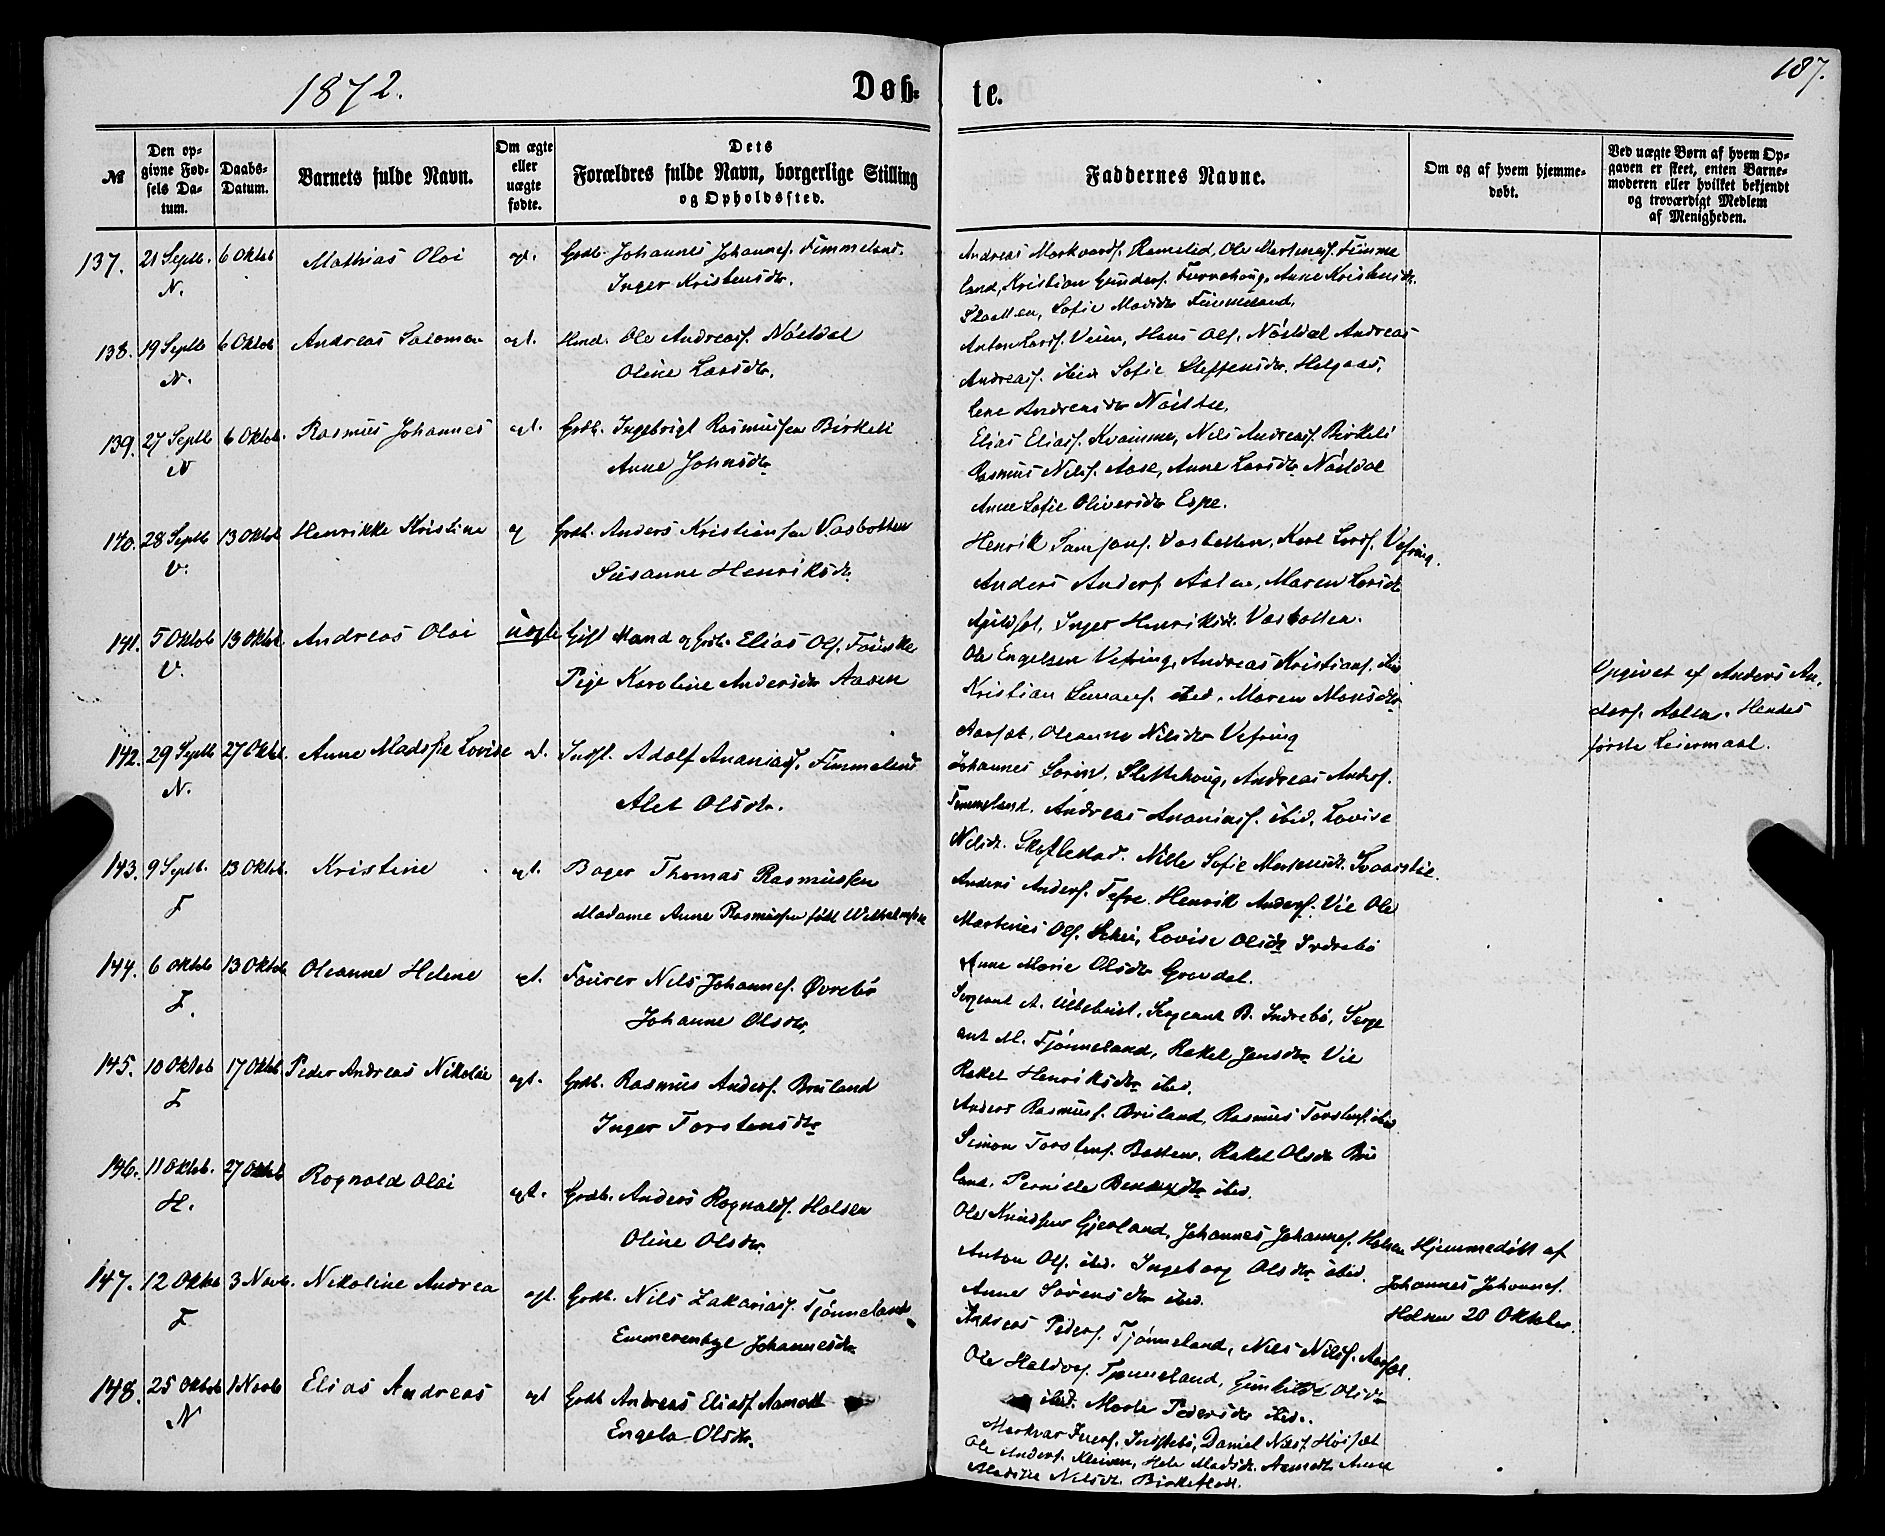 1872.
Døb-
te.
187.
№
Den op-
givne Fød-
sels Da-
tum.
Daabs-
Datum.
Barnets fulde Navn.
Om ægte
eller
uægte
fødte.
Dets
Forældres fulde Navn, borgerlige Stilling
og Opholdssted.
Faddernes Navne.
Om og af hvem hjemme-
døbt.
Ved uægte Børn af hvem Op-
gaven er skeet, enten Barne-
moderen eller hvilket bekjendt
og troværdigt Medlem
af Menigheden.
137. 21 Septb. 6 Oktob Mathias Olai egt. Grdb. Johannes Johannes. Fimmeland.
N. Inger Kristensdr.
Andreas Markvards. Ramstad, Ole Martenes. Fimme
land, Kristian Gunders. Furrehoug, Anne Kristensdr.
Sofie Madsdr. Fimmeland.
138. 19 Septb 6 Oktob Andreas Salomon egt. Hmd. Ole Andreas. Nöstdal
N. Oline Larsdr.
Anton Lars. Veien, Hans Ols. Nöstdal Andreas
Andreas. ibid Sofie Steffensdr. Helgaas,
Lene Andreasdr Nöstdal.
139. 27 Septb 6 Oktob. Rasmus Johannes egt. Grdb. Ingebrigt Rasmussen Birkeli
N Anne Johnsdr
Elias Elias. Kvamme, Nils Andreas. Birkeli
Rasmus Nils. Aase, Anne Larsdr Nöstdal
Anne Sofie Oliversdr Espe.
140. 28 Septb 13 Oktob Henrikke Kristine eg Grdb. Anders Kristiansen Vasbotten
V. Susanne Henriksdr
Henrik Samsons. Vasbotten, Karl Lars. Vefring.
Anders Anders. Aalen, Maren Larsdr
Inger Henriksdr Vasbotten.
141. 5 Oktob 13 Oktob. Andreas Olai uegte Gift Mand og Grdb. Elias Ols. Fauske
V. Pige Karoline Andersdr Aasen
Ole Engelsen Vefring, Andreas Kristians. ibid
Kristian Simans. ibid, Maren Monsdr
Aarset, Oleanne Nilsdr Vefring
Opgivet af Anders An.
ders. Aalen. Hendes
første Leiermaal.
142. 29 Septb 27 Oktob. Anne Madsfie Lovise et. Indst. Adolf Ananias. Fimmeland
N. Alet Olsdr.
Johannes Sörin. Slettehoug, Andreas Anders.
Fimmeland. Andreas Ananias. ibid, Lovise
Nilsdr. Skaflestad. Nille Sofie
143. 9 Septb. 13 Oktob. Kristine egt. Bager Thomas Rasmussen
F Madame Anne Rasmussen født Wilhelmsen
Anders Anders. Tefre. Henrik Anders. Vie Ole
Martines Ols. Schei, Lovise Olsdr Indrebö
Anne Marie Olsdr Gravdal.
144. 6 Oktob 13 Oktob Oleanne Helene egt. Fourer Nils Johannes. Øvrebö
F. Johanne Olsdr.
Sergeant A. Ullebust, Sergeant B. Indrebö, Serge
ant M. Tjönneland, Rakel Jensdr Vie
Rakel Henriksdr ibid.
145. 10 Oktob 17 Oktob Peder Andreas Nikolai egt. Grdb. Rasmus Anders. Bruland
F Inger Torstensdr
Anders Rasmus. Bruland, Rasmus Torstens. ibid
Simon Torstens. Botten, Rakel Olsdr Bru
land, Pernille Bendixdr ibid.
146. 11 Oktob. 27 Oktob Rognald Olai egt. Grdb. Anders Rognalds. Holsen
H. Oline Olsdr.
Ole Knudsen Gjerland, Johannes Johannes. Holsen
Anton Ols. ibid. Ingeborg Olsdr ibid.
Anne Sörensdr ibid.
Hjemmedöbt af
Johannes Johannes.
Holsen 20 Oktober.
147. 12 Oktob 3 Novb. Nikoline Andrea egt. Grdb. Nils Zakarias. Tjönneland
F Emmerentze Johannesdr
Andreas Peders. Tjönneland, Nils Nils. Aarset.
Ole Haldors. Tjönneland, Gunhilde Olsdr
ibid. Marte Pedersdr ibid.
148. 25 Oktob 1 Novb Elias Andreas egt Grdb Andreas Elias. Aamot
N Engela Olsdr.
Markvar Ivers. Daniel Nils. Höiset
Ole Anders. Kleiven, Hele Madsdr. Aamodt Anne
Nilsdr. Birkeflot.